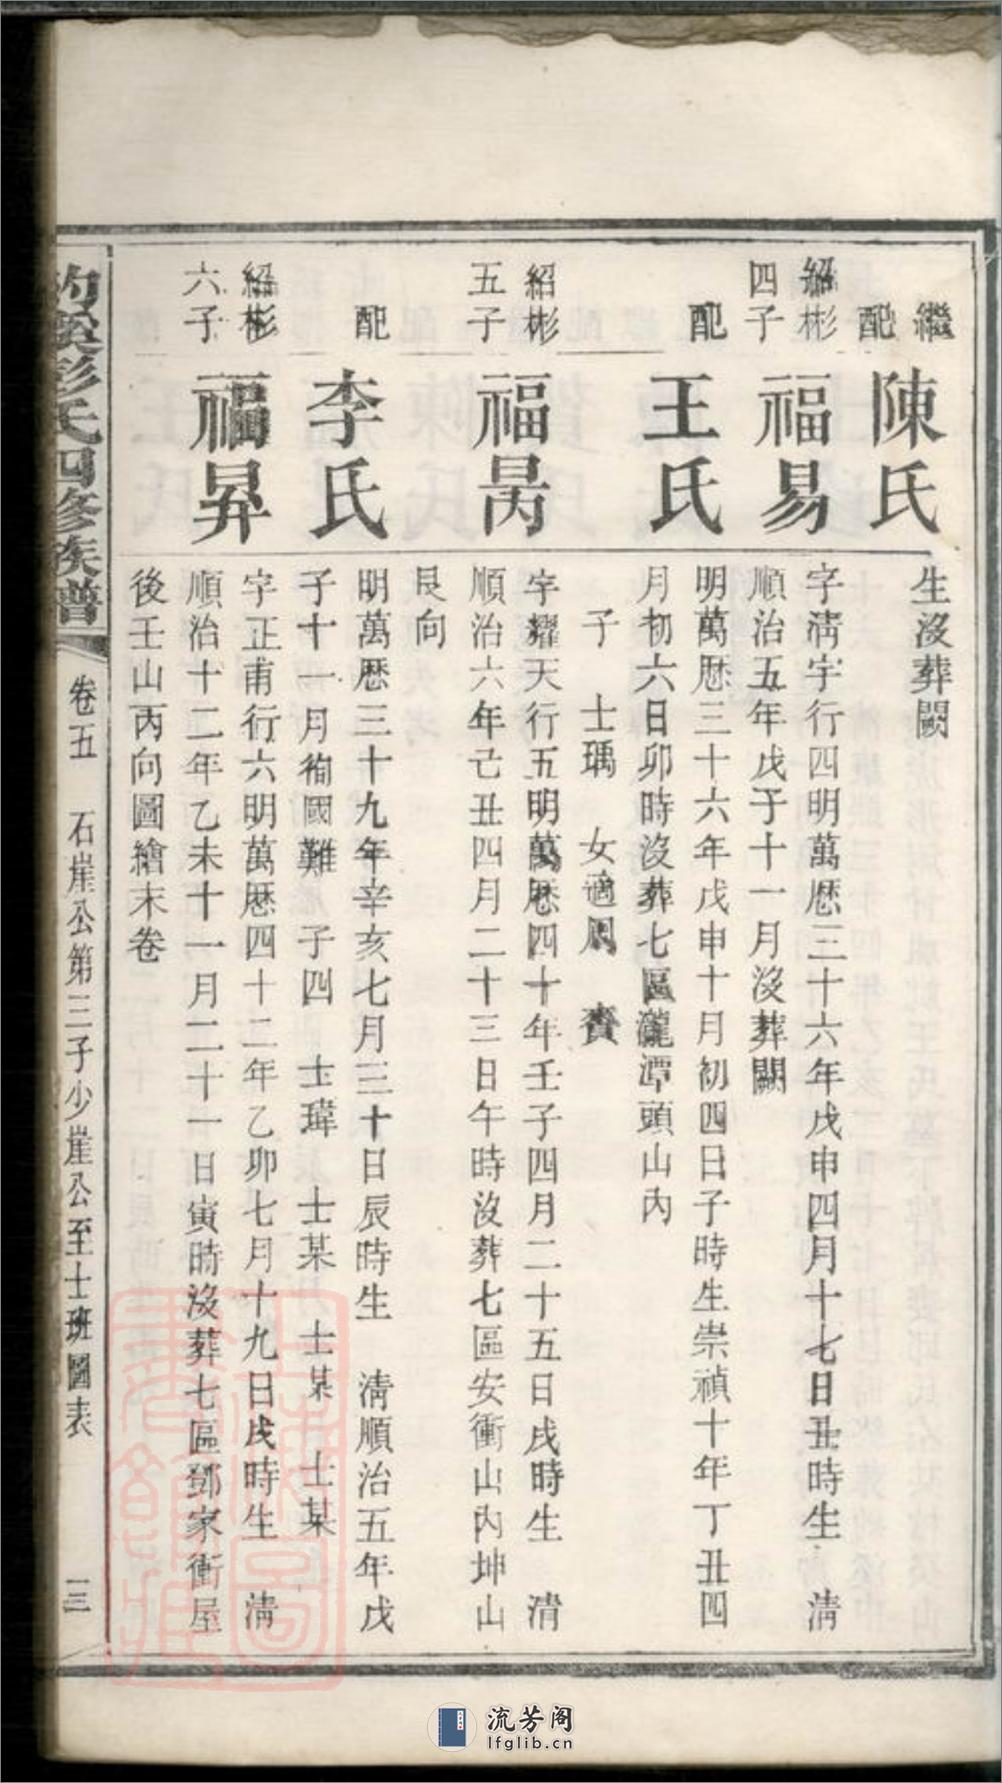 繼配
陳氏
生沒葬闕
紹彬四子
福易
字淸宇行四明萬厯三十六年戊申四月十七日丑時生 淸
順治五年戊子十一月沒葬闕
配
王氏
明萬厯三十六年戊申十月初四日子時生崇禎十年丁丑四
月初六日卯時沒葬七區瀧潭頭山內
子 士瑀 女適周 賚
紹彬五子
福昺
字耀天行五明萬厯四十年壬子四月二十五日戌時生 淸
順治六年己丑四月二十三日午時沒葬七區安衝山內坤山
艮向
配
李氏
明萬厯三十九年辛亥七月三十日辰時生 淸順治五年戊
子十一月徇國難 子四 士瑋 士某 士某 士某
紹彬六子
福昇
字正甫行六明萬厯四十二年乙卯七月十九日戌時生 淸
順治十二年乙未十一月二十一日寅時沒葬七區鄧家衝屋
後壬山丙向圖繪末卷
彭氏四修族譜
卷五 石崖公第三子少崖公至士班圖表 三
流芳阁
lfglib.cn